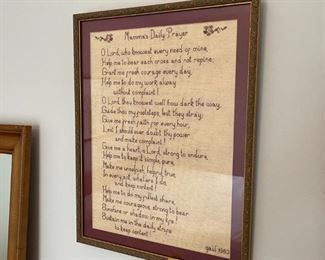 Mamma's Daily Prayer
O Lord, who knowest every need of mine,
Help me to bear each cross and not repine;
Grant me fresh courage every day,
Help me to do my work alway
without complaint!
O Lord, thou knowest well how dark the way,
Guide thou my footsteps, lest they stray;
Give me fresh faith for every hour,
Lest I should ever doubt thy power
and make complaint!
Give me a heart, O Lord, strong to endure,
Help me to keep it simple, pure,
Make me unselfish, helpful, true,
In every act, whate'er I do,
and keep content!
Help me to do my share,
Make me courageous, strong to bear
Sunshine or shadow in my life!
Sustain me in the daily strife
to keep content!
1983